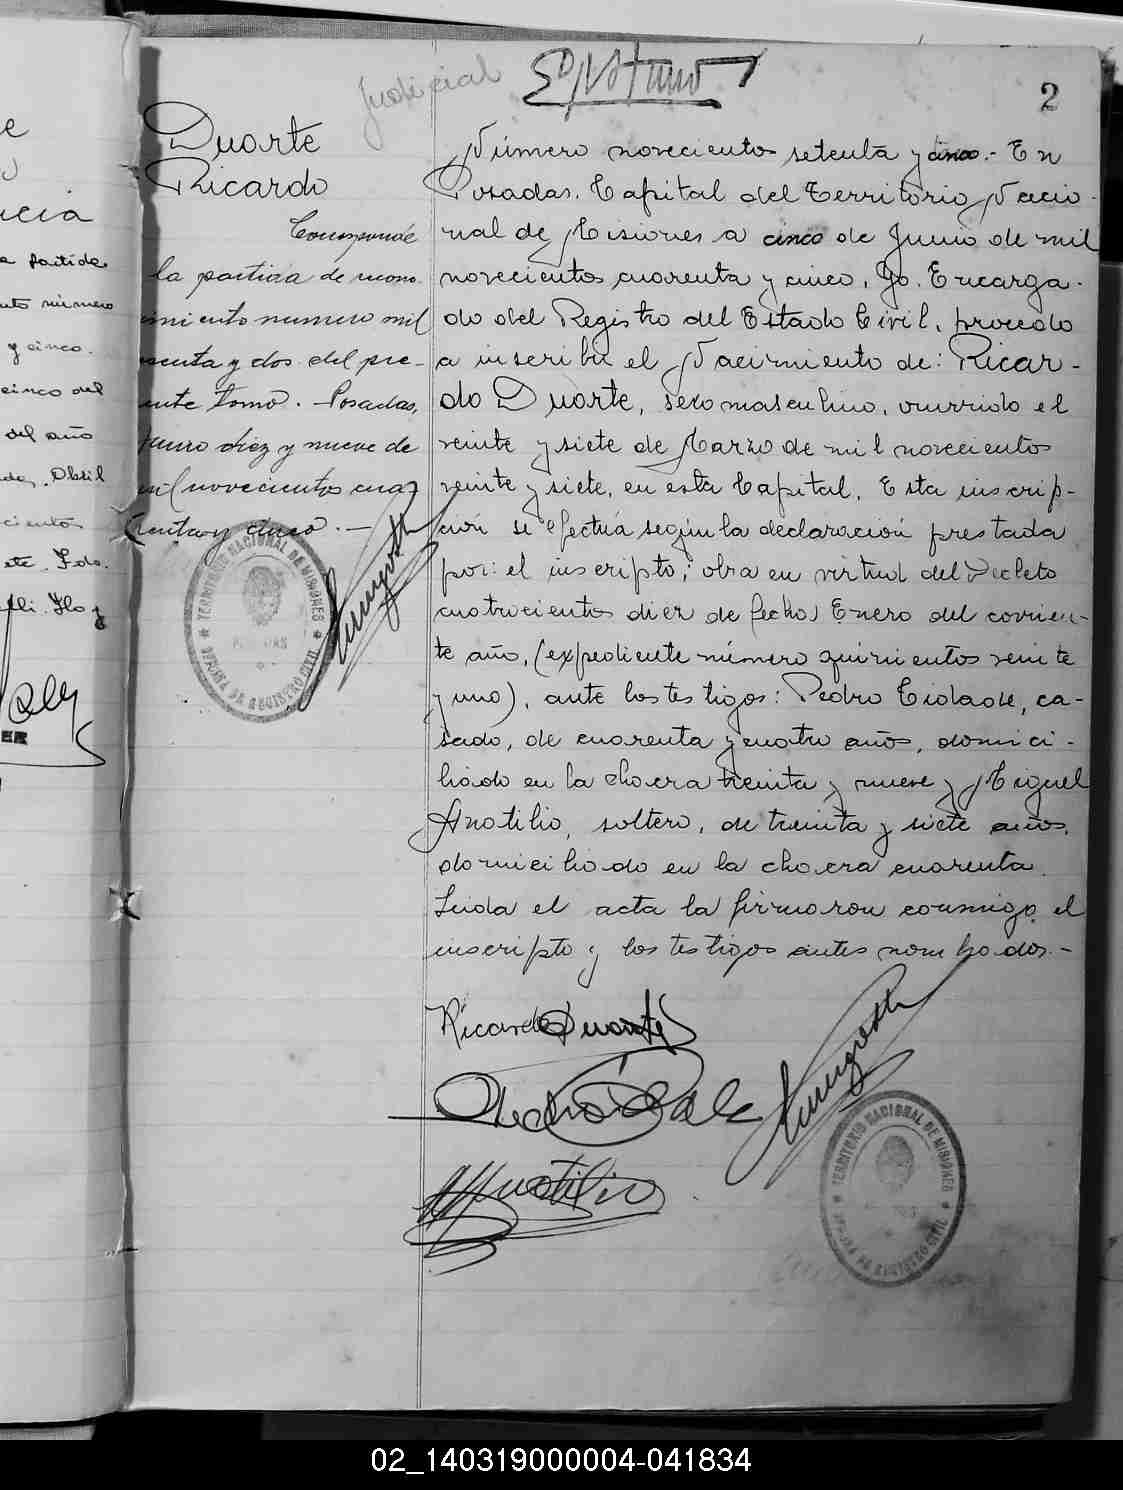 Judicial
2
Duarte
Ricardo
Corresponde
la partida de recono-
cimiento numero mil
y dos del pre-
sente tomo. Posadas,
Junio diez y nueve de
mil novecientos cua
renta y cinco. —
TERRITORIO NACIONAL DE MISIONES
OFICINA DE REGISTRO CIVIL
Número novecientos setenta y cinco.- En
Posadas, Capital del Territorio Nacio-
nal de Misiones a cinco de Junio de mil
novecientos cuarenta y cinco, Yo, Encarga-
do del Registro del Estado Civil, procedo
a inscribir el Nacimiento de: Ricar-
do Duarte, sexo masculino, ocurrido el
veinte y siete de Marzo de mil novecientos
veinte y siete, en esta Capital. Esta inscrip-
ción se efectúa según la declaración prestada
por: el inscripto; obra en virtud del Decreto
cuatrocientos diez de fecha Enero del corrien-
te año, (expediente número quinientos veinte
y uno), ante los testigos: Pedro Cidade, ca-
sado, de cuarenta y cuatro años, domici-
liado en la chacra treinta y nueve y Miguel
Anotilio, soltero, de treinta y siete años,
domiciliado en la chacra cuarenta.
Leida el acta la firmaron conmigo el
inscripto y los testigos antes nombrados.-
Ricardo Duarte
TERRITORIO NACIONAL DE MISIONES
OFICINA DE REGISTRO CIVIL
partida
número
y cinco.
cinco del
del año
Abril
cientos
Fdo.
02_140319000004-041834